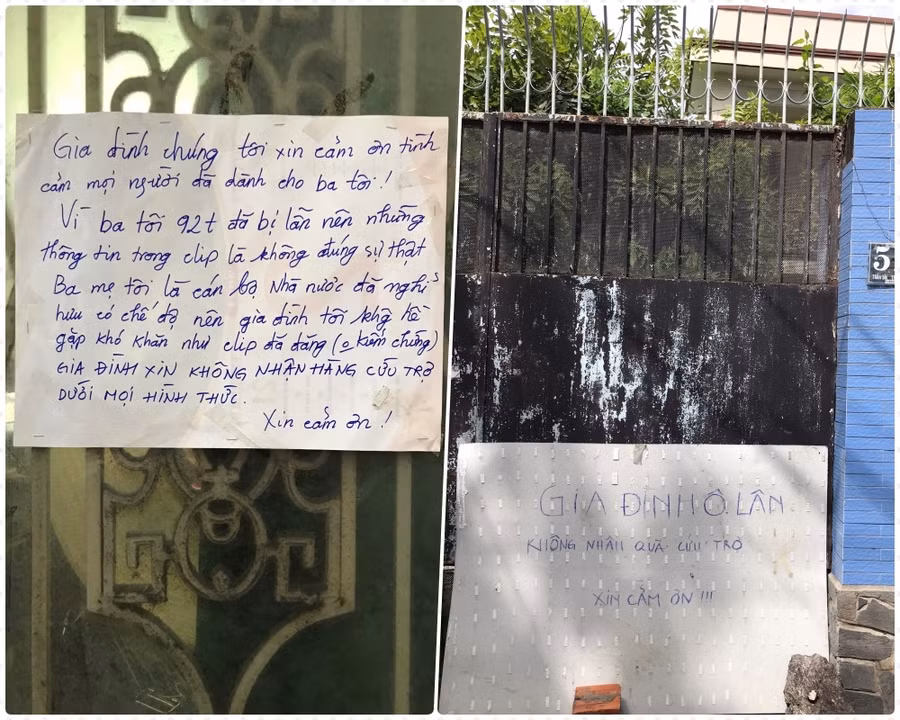 Gia đình chúng tôi xin cảm ơn tình
cảm mọi người đã dành cho ba tôi!
Vì ba tôi 92t đã bị lẫn nên những
thông tin trong clip là không đúng sự thật
Ba mẹ tôi là cán bộ Nhà nước đã nghỉ
hưu có chế độ nên gia đình tôi khg hề
gặp khó khăn như clip đã đăng (o kiểm chứng)
GIA ĐÌNH XIN KHÔNG NHẬN HÀNG CỨU TRỢ
DƯỚI MỌI HÌNH THỨC.
Xin cảm ơn!
5
GIA ĐÌNH Ô. LÂN
KHÔNG NHẬN QUÀ CỨU TRỢ
XIN CẢM ƠN !!!